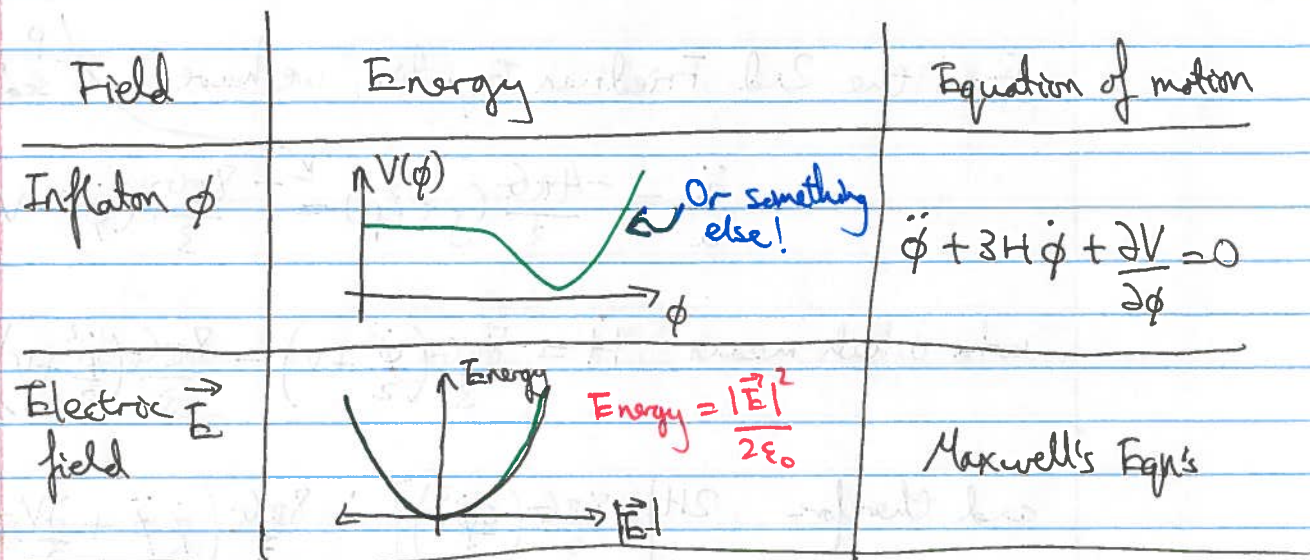 Field Energy Equation of motion
Inflaton ϕ
V(ϕ)
Or something
else!
ϕ
ϕ̈ + 3Hϕ̇ + ∂V/∂ϕ = 0
Electric E⃗
field
Energy
|E⃗|
Energy = |E⃗|²/2ε₀
Maxwell's Eqn's